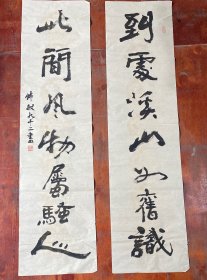 到處溪山如舊識
此間風物屬騷人